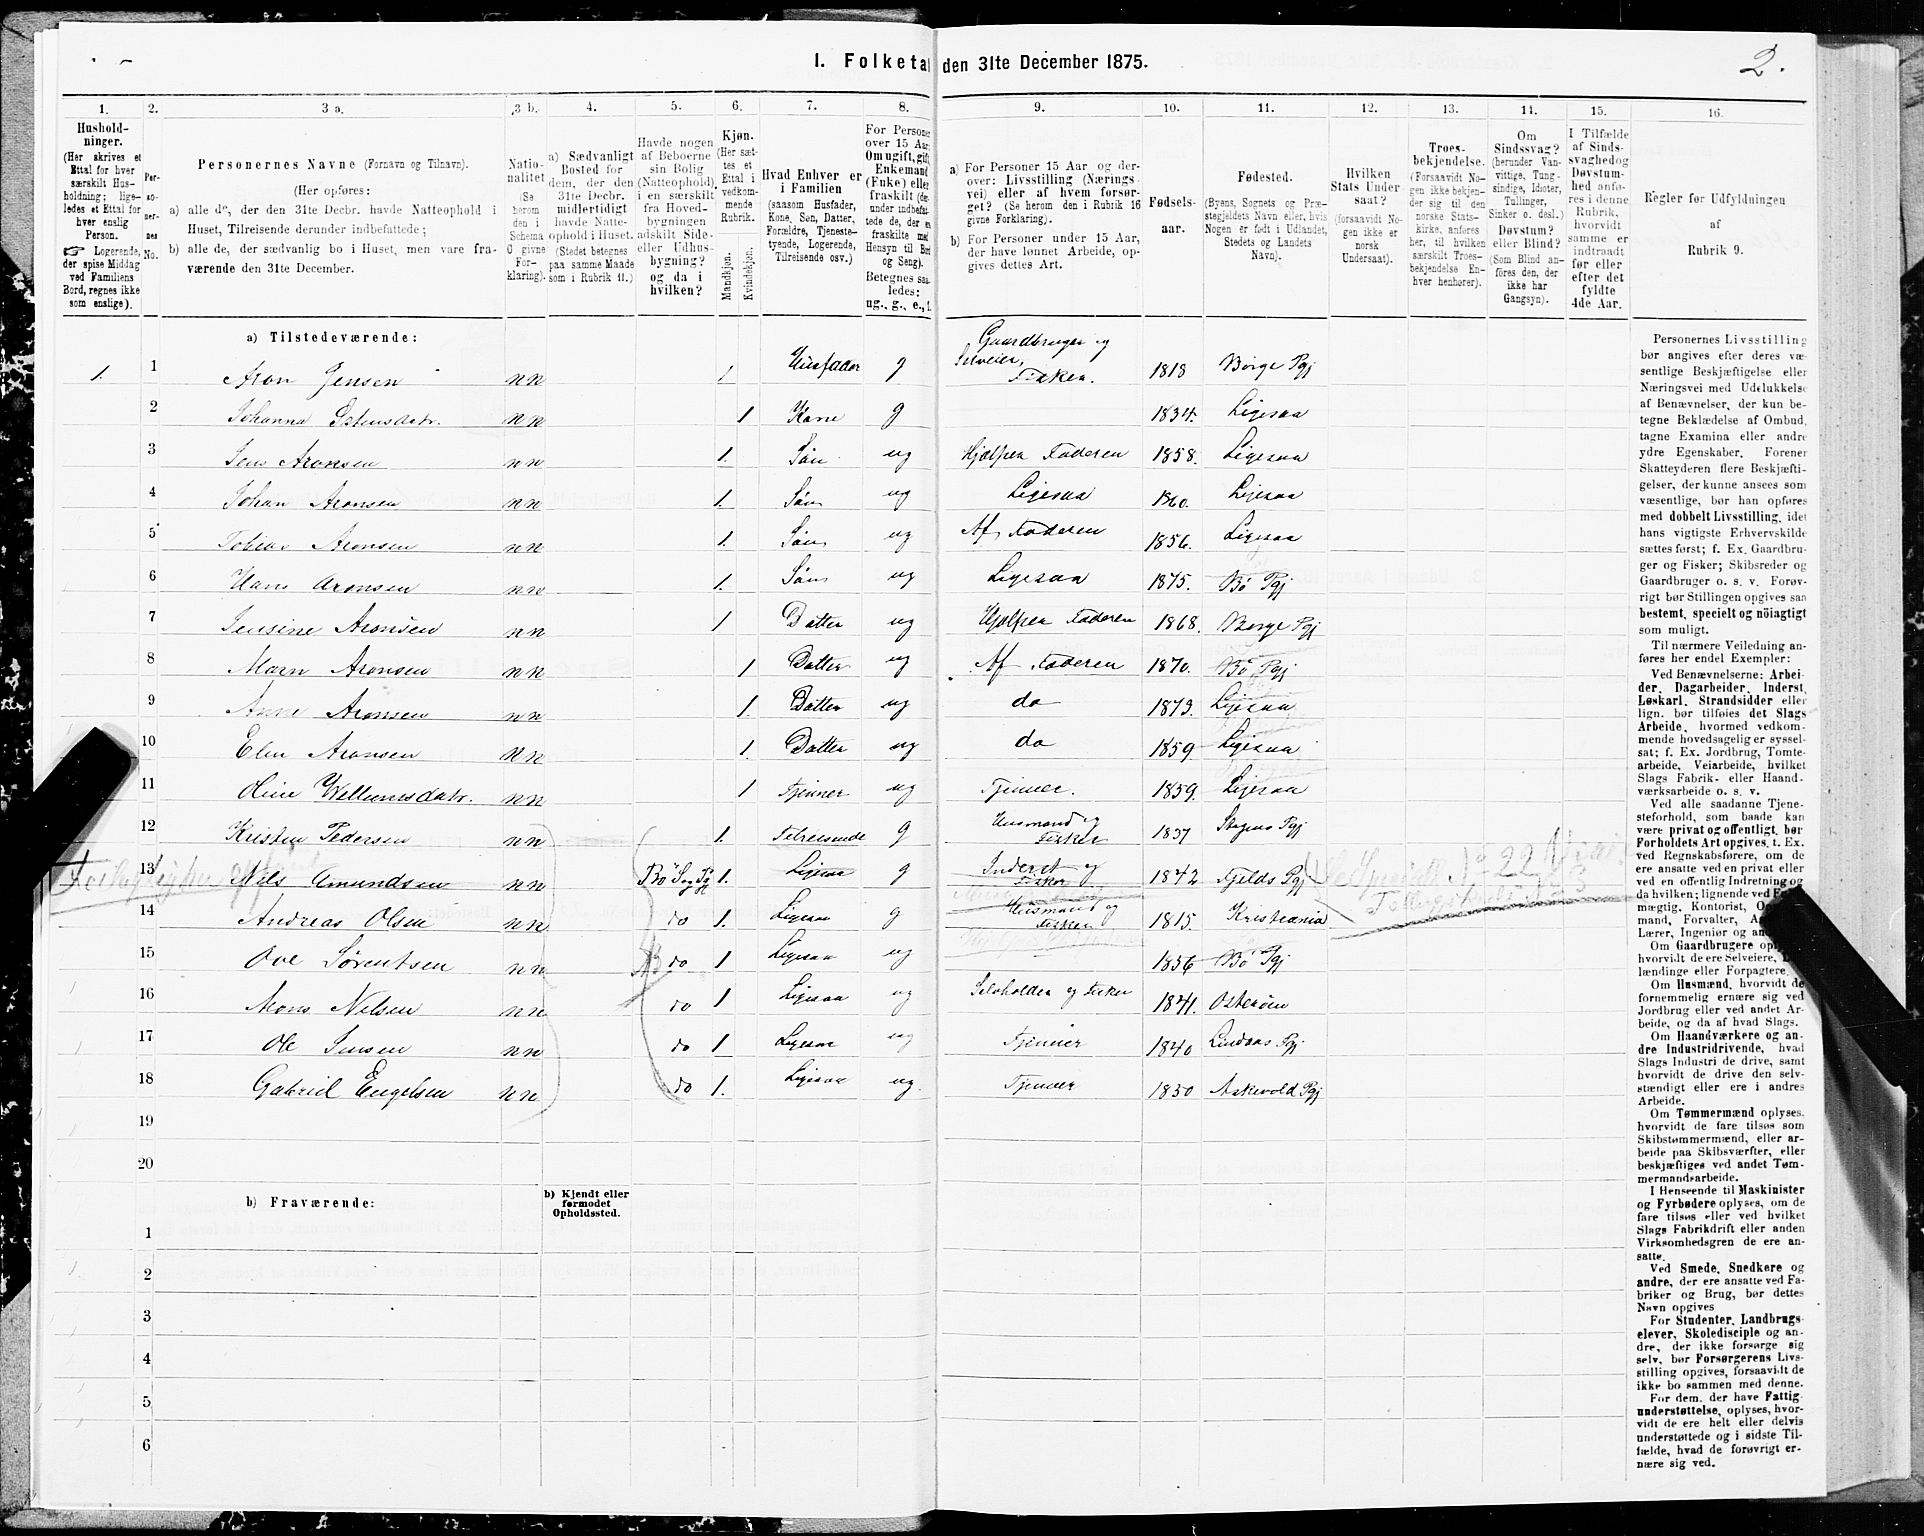 I. Folketal den 31te December 1875.
2.
1. 2. 3 a. 3 b. 4. 5. 6. 7. 8. 9. 10. 11. 12. 13. 14. 15. 16.
Hushold-
ninger.
(Her skrives et
Ettal for hver
særskilt Hus-
holdning; lige-
ledes et Ettal for
hver enslig
Person.
☞ Logerende,
der spise Middag
ved Familiens
Bord, regnes ikke
som enslige).
Per-
so-
ner-
nes
No.
Personernes Navne (Fornavn og Tilnavn).
(Her opføres:
a) alle de, der den 31te Decbr. havde Natteophold i
Huset, Tilreisende derunder indbefattede;
b) alle de, der sædvanlig bo i Huset, men vare fra-
værende den 31te December.
Natio-
nalitet
(Se
herom
den i
Schema
O givne
For-
klaring).
a) Sædvanligt
Bosted for
dem, der den
31te Decbr.
midlertidigt
havde Natte-
ophold i Huset.
(Stedet betegnes
paa samme Maade
som i Rubrik 11.)
Havde nogen
af Beboerne
sin Bolig
(Natteophold)
i en særskilt
fra Hoved-
bygningen
adskilt Side-
eller Udhus-
bygning?
og da i
hvilken?
Kjøn.
(Her sæt-
tes et
Ettal i
vedkom-
mende
Rubrik.
Mandkjøn.
Kvindekjøn.
Hvad Enhver er
i Familien
(saasom Husfader,
Kone, Søn, Datter,
Forældre, Tjeneste-
tyende, Logerende,
Tilreisende osv.)
For Personer
over 15 Aar:
Om ugift, gift,
Enkemand
(Enke) eller
fraskilt
Hensyn til Bord
og Seng).
Betegnes saa-
ledes:
ug., g., e., f.
a) For Personer 15 Aar og der-
over: Livsstilling (Nærings-
vei) eller af hvem forsør-
get? (Se herom den i Rubrik 16
givne Forklaring).
b) For Personer under 15 Aar,
der have lønnet Arbeide, op-
gives dettes Art.
Fødsels-
aar.
Fødested.
(Byens, Sognets og Præ-
stegjeldets Navn eller, hvis
Nogen er født i Udlandet,
Stedets og Landets
Navn).
Hvilken
Stats Under-
saat?
(forsaavidt No-
gen ikke er
norsk
Undersaat).
Troes-
bekjendelse.
(Forsaavidt No-
gen ikke bekjen-
der sig til den
norske Stats-
kirke, anføres
her, til hvilken
særskilt Troes-
bekjendelse En-
hver henhører).
Om
Sindssvag?
(herunder Van-
vittige, Tung-
sindige, Idioter,
Tullinger,
Sinker o. desl.)
Døvstum?
eller Blind?
(Som Blind an-
føres den, der
ikke har
Gangsyn).
I Tilfælde
af Sinds-
svaghed og
Døvstum-
hed anfø-
res i denne
Rubrik,
hvorvidt
samme er
indtraadt
før eller
efter det
fyldte
4de Aar.
Regler for Udfyldningen
af
Rubrik 9.
a) Tilstedeværende:
1. 1 Aron Jensen nn 1. Husfader g Gaardbruger og Selveier, Fisker. 1818 Borge Pgj
2 Johanna Estensdatr. nn 1 Kone g 1834. Ligesaa
3 Jens Aronsen nn 1. Søn ug Hjælper Faderen 1858. Ligesaa
4 Johan Aronsen nn 1. Søn ug Ligesaa 1860. Ligesaa
5 Tobias Aronsen nn 1. Søn ug Af Faderen 1856. Ligesaa
6 Hans Aronsen nn 1. Søn ug Ligesaa 1875. Bö Pgj
7 Jensine Aronsen nn 1 Datter ug Hjælper Faderen 1868. Borge Pgj
8 Maren Aronsen nn 1 Datter ug Af Faderen 1870. Bö Pgj
9 Anne Aronsen nn 1. Datter ug do 1873. Ligesaa
10 Elen Aronsen nn 1. Datter ug do 1859 Ligesaa
11 Oline Wellumsdatr. nn 1 Tjener ug Tjener. 1859. Ligesaa
12 Kristen Pedersen nn 1. Tilreisende g Husmand og Fisker 1837 Pgj
13 Nils Amundsen nn Bö Sog Pgj 1. Ligesaa g Inderst og Fisker 1842 Fjelds Pgj
14 Andreas Olsen nn do 1. Ligesaa g Husmand og Fisker 1815. Kristiania
15 Ove Sørentsen nn do 1 Ligesaa ug 1856 Bö Pgj
16 Mons Nilsen nn do 1 Ligesaa ug Selvholden og Fisker 1841. Osterøen
17 Ole Jensen nn do 1 Ligesaa ug Tjener 1840 Lindaas Pgj
18 Gabriel Engelsen nn do 1. Ligesaa ug. Tjener 1850 Askevold Pgj
19
20
b) Fraværende:
b) Kjendt eller
formodet
Opholdssted.
1
2
3
4
5
6
Personernes Livsstilling
bør angives efter deres væ-
sentlige Beskjæftigelse eller
Næringsvei med Udelukkelse
af Benævnelser, der kun be-
tegne Beklædelse af Ombud,
tagne Examina eller andre
ydre Egenskaber. Forener
Skatteyderen flere Beskjæfti-
gelser, der kunne ansees som
væsentlige, bør han opføres
med dobbelt Livsstilling, idet
hans vigtigste Erhvervskilde
sættes først; f. Ex. Gaardbru-
ger og Fisker; Skibsreder og
Gaardbruger o. s. v. Forøv-
rigt bør Stillingen opgives saa
bestemt, specielt og nöiagtigt
som muligt.
Til nærmere Veiledning an-
føres her endel Exempler:
Ved Benævnelserne: Arbei-
der, Dagarbeider, Inderst,
Løskarl, Strandsidder eller
lign. bør tilføies det Slags
Arbeide, hvormed vedkom-
mende hovedsagelig er syssel-
sat; f. Ex. Jordbrug, Tomte-
arbeide, Veiarbeide, hvilket
Slags Fabrik- eller Haand-
værksarbeide o. s. v.
Ved alle saadanne Tjene-
steforhold, som baade kan
være privat og offentligt, bør
Forholdets Art opgives, t. Ex.
ved Regnskabsførere, om de
ere ansatte ved en privat eller
ved en offentlig Indretning og
da hvilken; lignende ved
mægtig, Kontorist,
mand, Forvalter,
Lærer, Ingeniør og
Om Gaardbrugere
hvorvidt de ere Selveiere,
lændinge eller Forpagtere.
Om Husmænd, hvorvidt de
fornemmelig ernære sig ved
Jordbrug eller ved andet Ar-
beide, og da af hvad Slags.
Om Haandværkere og an-
dre Industridrivende, hvad
Slags Industri de drive, samt
hvorvidt de drive den selv-
stændigt eller ere i andres
Arbeide.
Om Tømmermænd oplyses,
hvorvidt de fare tilsøs som
Skibstømmermænd, eller ar-
beide paa Skibsværfter, eller
beskjæftiges ved andet Tøm-
mermandsarbeide.
I Henseende til Maskinister
og Fyrbødere oplyses, om de
fare tilsøs eller ved hvilket
Slags Fabrikdrift eller anden
Virksomhedsgren de ere an-
satte.
Ved Smede, Snedkere og
andre, der ere ansatte ved Fa-
briker og Brug, bør dettes
Navn opgives
For Studenter, Landbrugs-
elever, Skoledisciple og an-
dre, der ikke forsørge sig
selv, bør Forsørgerens Livs-
stilling opgives, forsaavidt de
ikke bo sammen med denne.
For dem, der have Fattig-
understøttelse, oplyses, hvor-
vidt de ere helt eller delvis
understøttede og i sidste Til-
fælde, hvad de forøvrigt er-
nære sig ved.